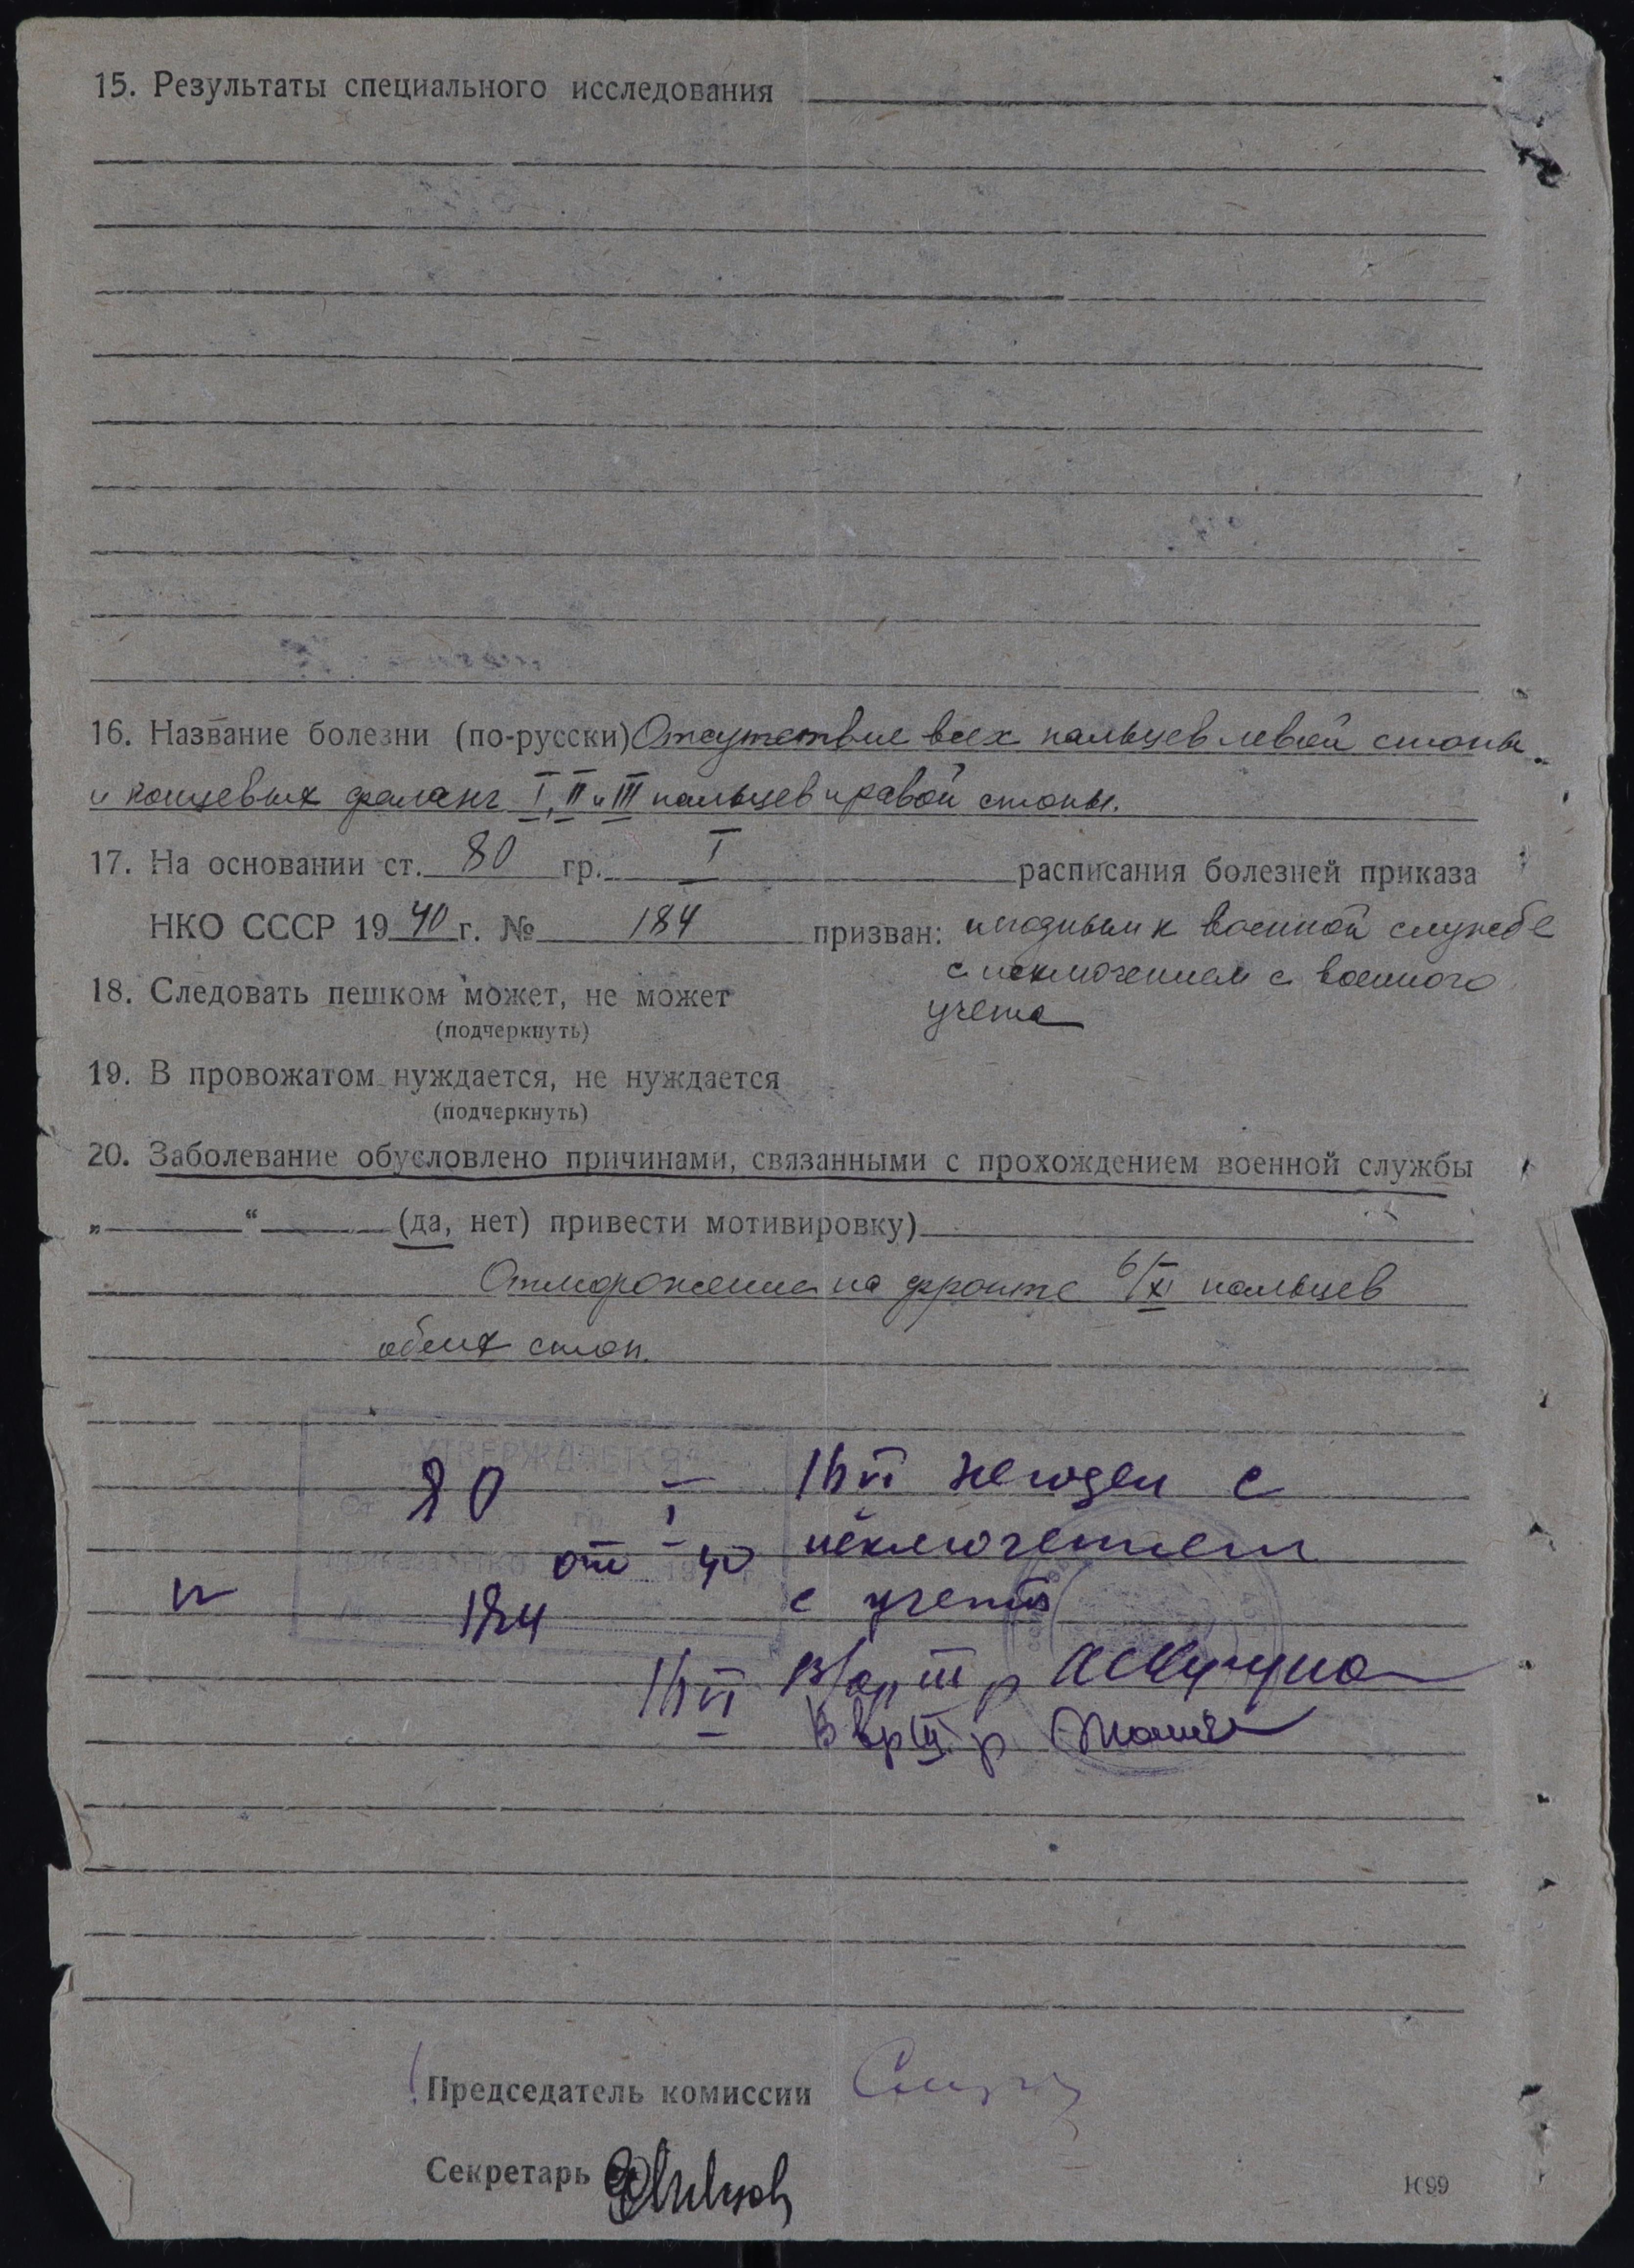 15. Результаты специального исследования
16. Название болезни (по-русски) Отсутствие всех пальцев левой стопы
и концевых фаланг I, II и III пальцев правой стопы.
17. На основании ст. 80 гр. I расписания болезней приказа
НКО СССР 1940 г. № 184 призван: негодным к военной службе
с исключением с военного
учета
18. Следовать пешком может, не может
(подчеркнуть)
19. В провожатом нуждается, не нуждается
(подчеркнуть)
20. Заболевание обусловлено причинами, связанными с прохождением военной службы
„ “ (да, нет) привести мотивировку)
Отморожение на фронте 6/XI пальцев
обеих стоп.
„УТВЕРЖДАЕТСЯ“
80 I негоден с
от 40 исключением
184 с учета
Председатель комиссии
Секретарь
К99